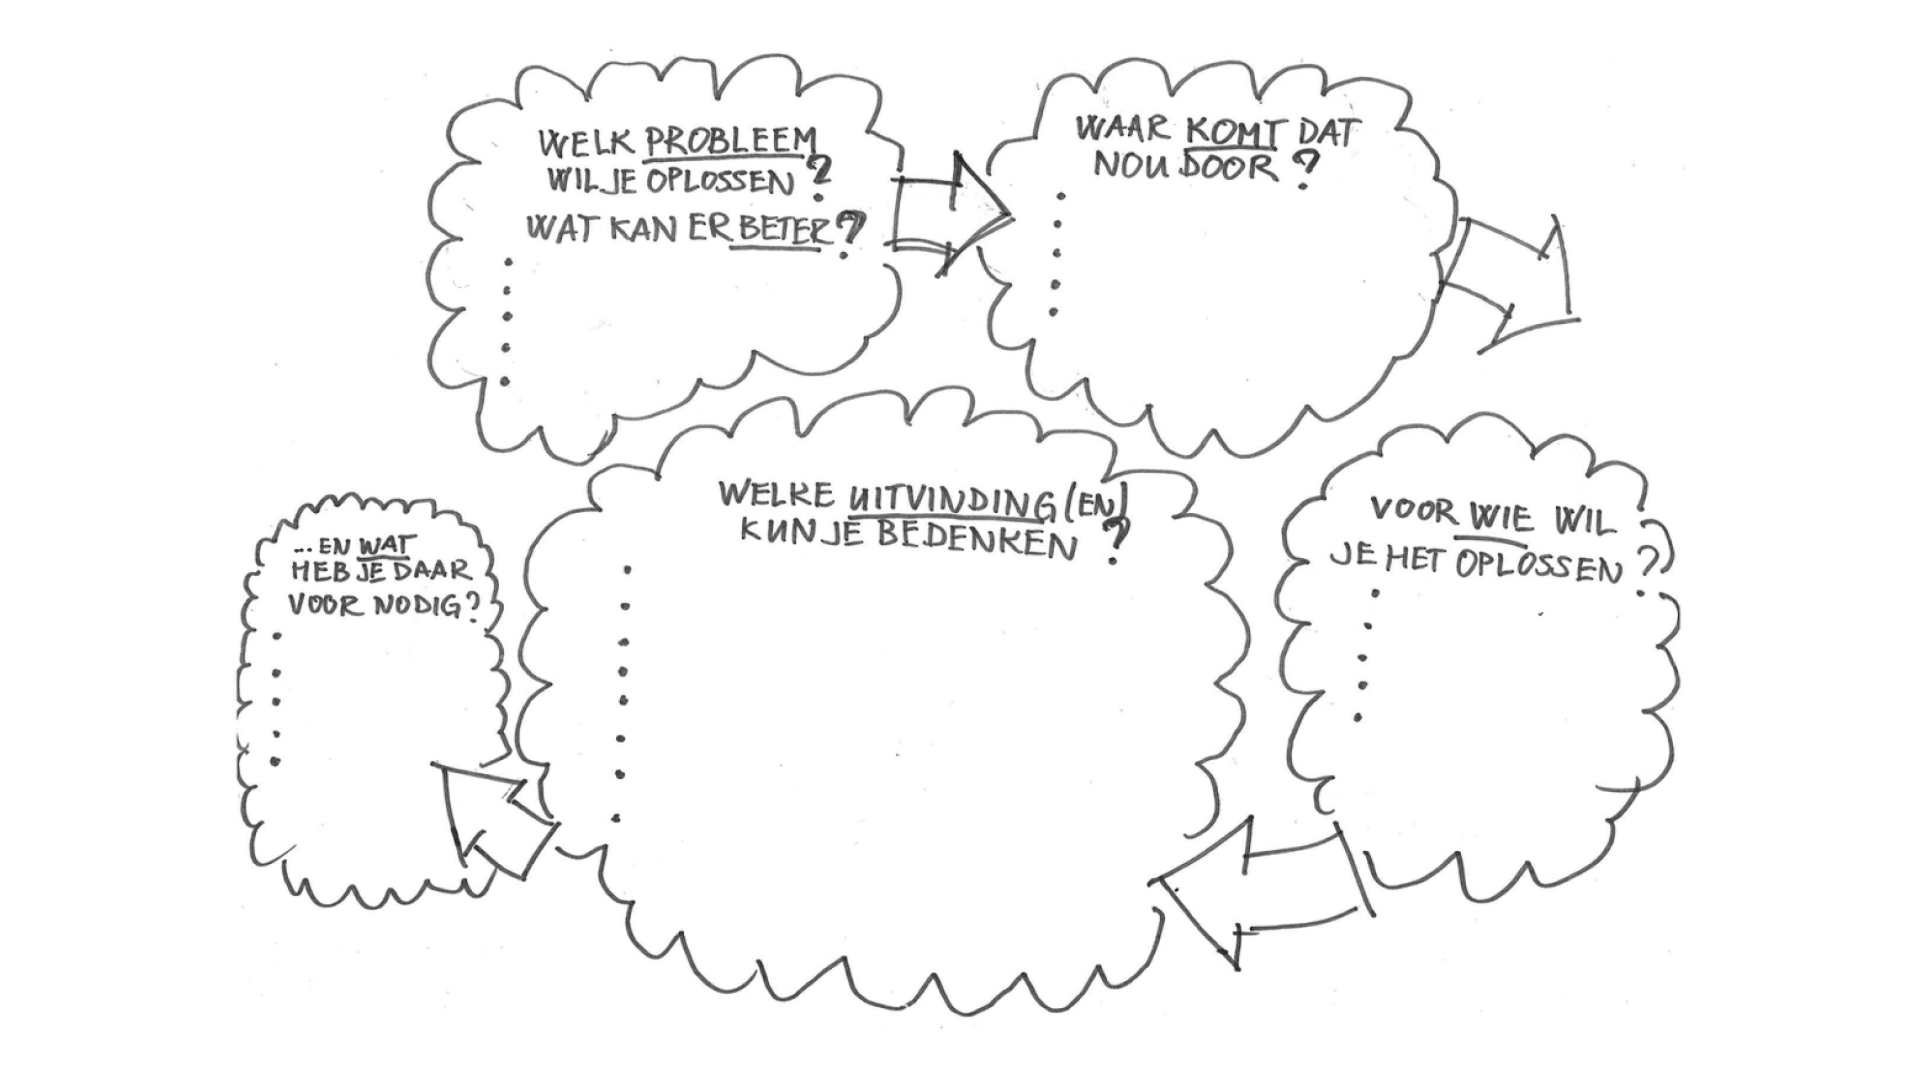 WELK PROBLEEM
WIL JE OPLOSSEN?
WAT KAN ER BETER?
WAAR KOMT DAT
NOU DOOR?
VOOR WIE WIL
JE HET OPLOSSEN?
WELKE UITVINDING(EN)
KUN JE BEDENKEN?
...EN WAT
HEB JE DAAR
VOOR NODIG?